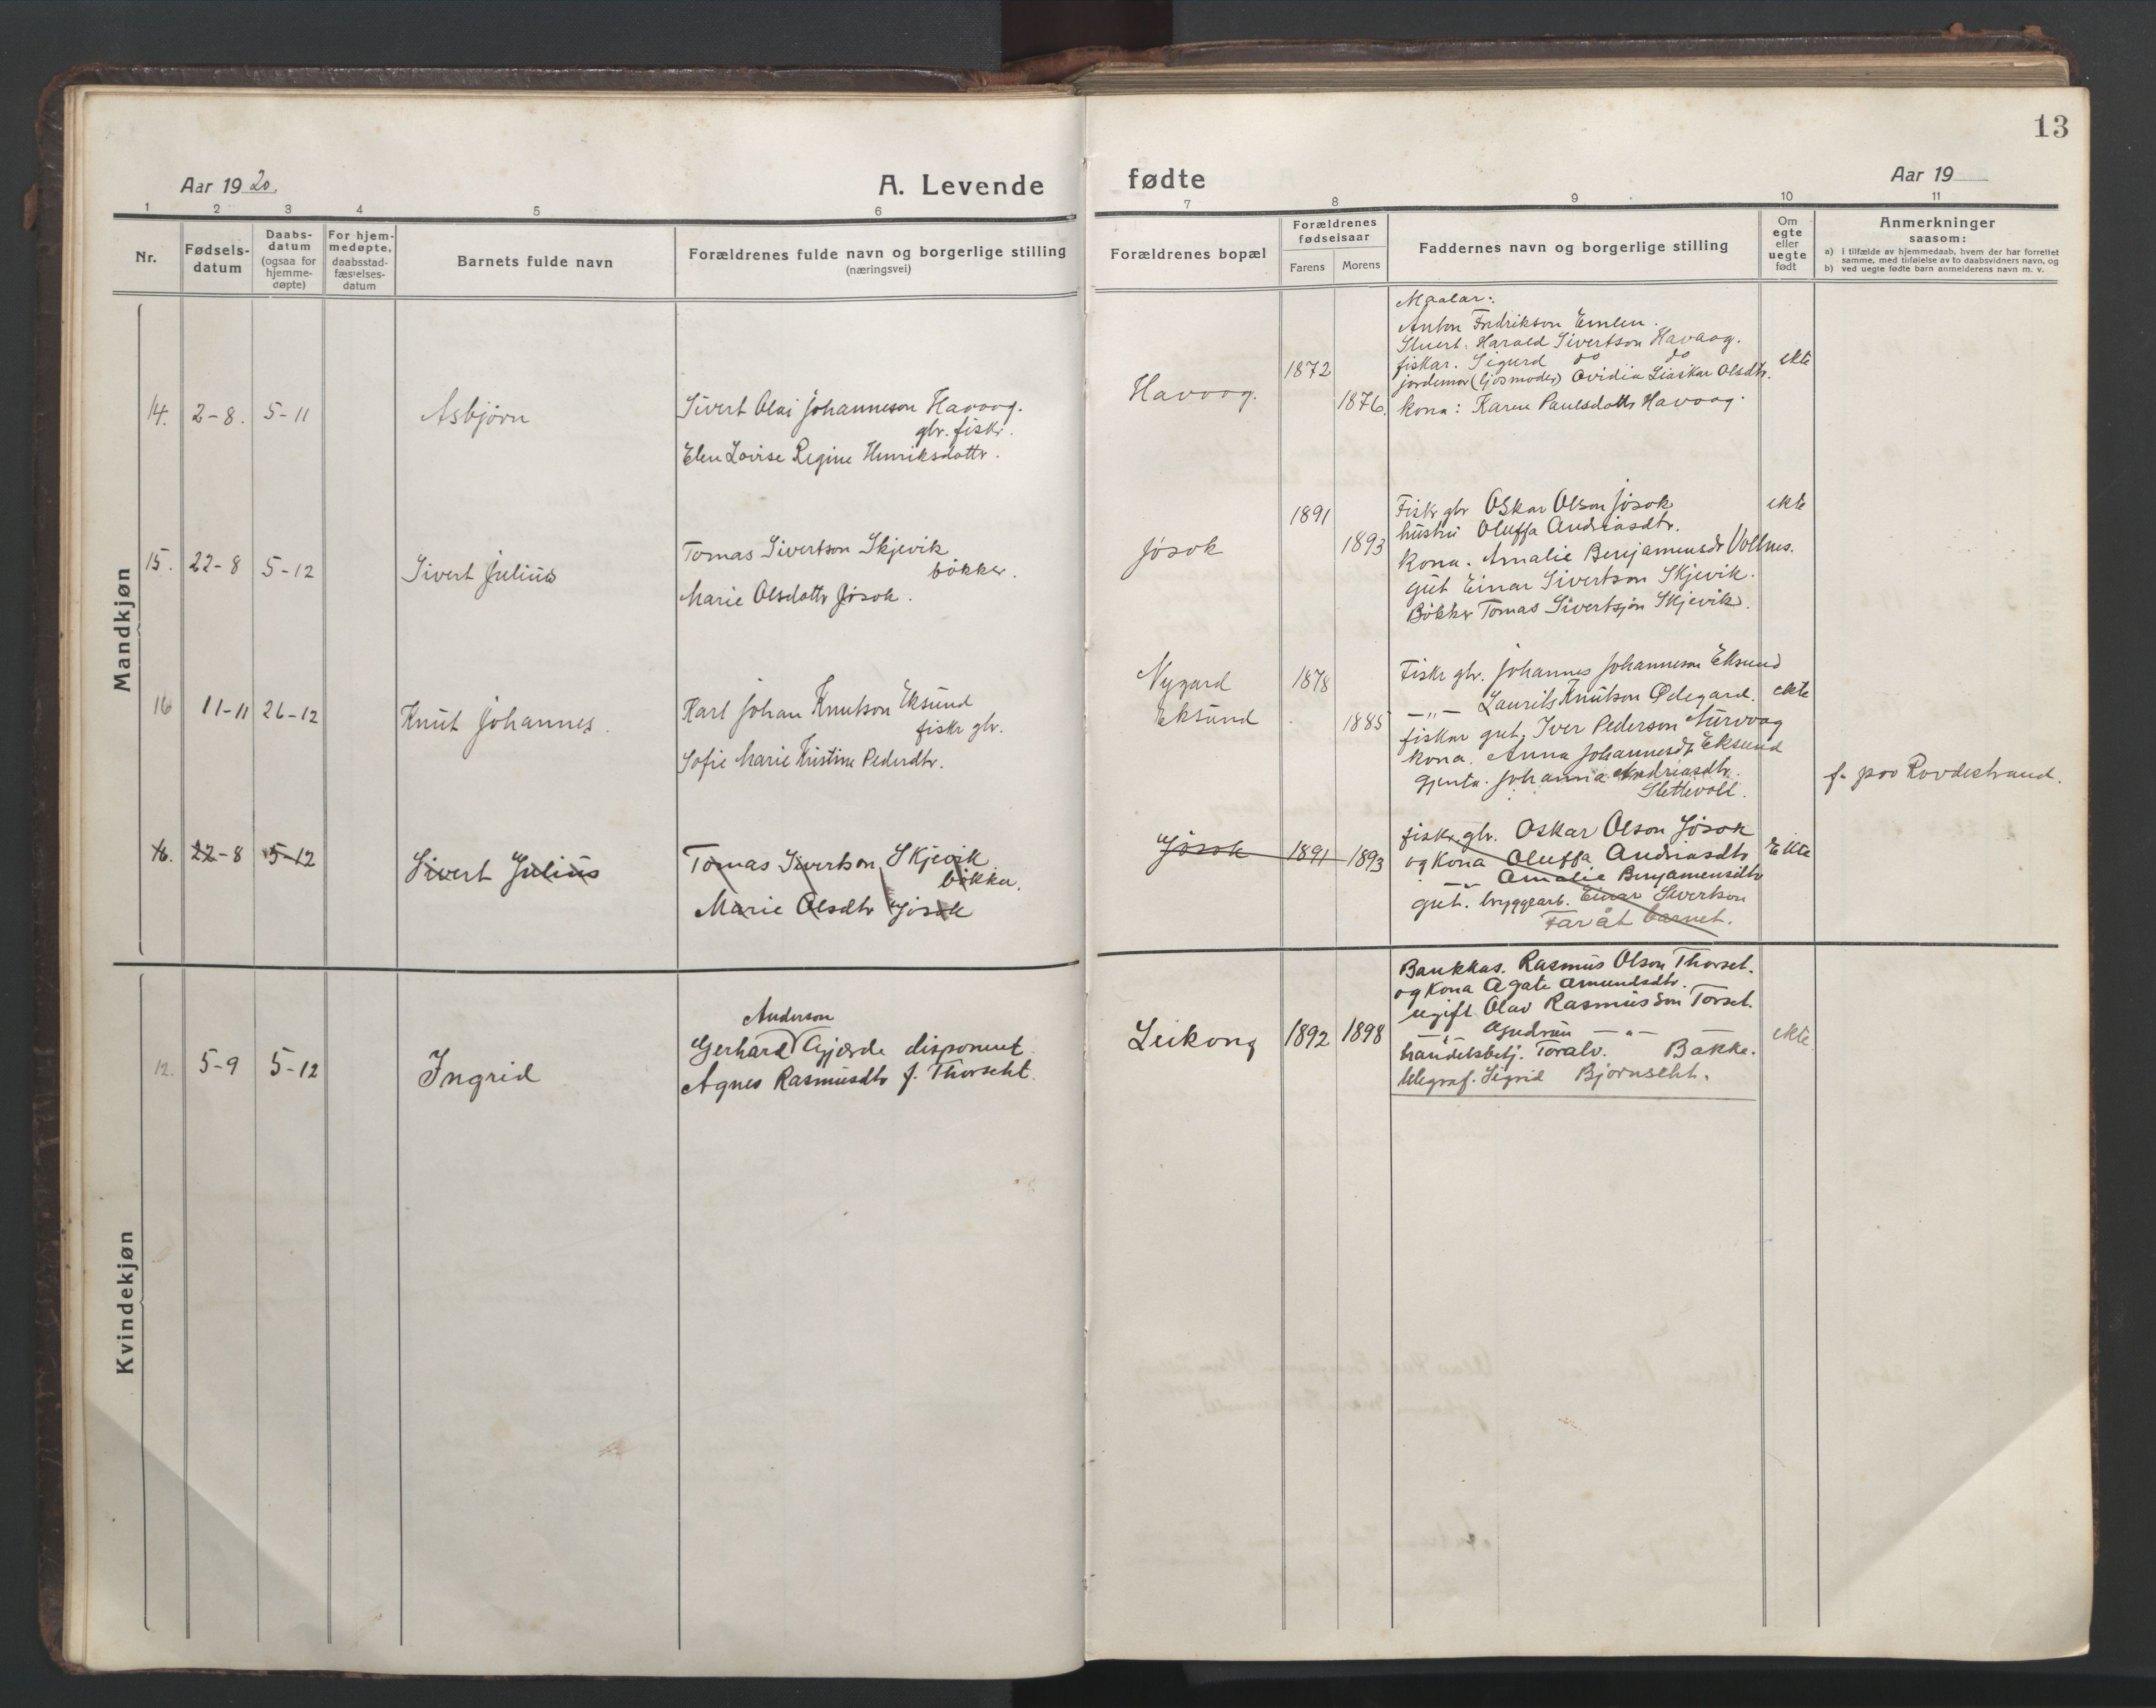 13
Aar 1920.
A. Levende
fødte
Aar 19
1 2 3 4 5 6 7 8 9 10 11
Nr.
Fødsels-
datum
Daabs-
datum
(ogsaa for
hjemme-
døpte)
For hjem-
medøpte,
daabsstad-
fæstelses-
datum
Barnets fulde navn
Forældrenes fulde navn og borgerlige stilling
(næringsvei)
Forældrenes bopæl
Forældrenes
fødselsaar
Farens
Morens
Faddernes navn og borgerlige stilling
Om
egte
eller
uegte
født
Anmerkninger
saasom:
a) i tilfælde av hjemmedaab, hvem der har forrettet
samme, med tilføielse av to daabsvidners navn, og
b) ved uegte fødte barn anmelderens navn m. v.
Mandkjøn
14. 2-8. 5-11
Asbjørn
Sivert Olai Johanneson Havoog.
gbr. fiskr.
Elen Lovise Regine Henriksdottr.
Havoog.
1872
1876.
Maalar:
Anton Fredrikson Emlen.
Stuert: Harald Sivertson Havaag.
fiskar. Sigurd do do
jordemor (ljosmoder) Ovidia Liaskar Olsdtr.
Kona: Karen Paulsdottr Havoog.
ekte
15. 22-8 5-12
Sivert Julius
Tomas Sivertson Skjevik
bøkker.
Marie Olsdottr Jøsok.
Jøsok
1891
1893
Fiskr gbr Oskar Olson Jøsok
hustru Oluffa Andriasdtr.
Kona. Amalie Benjamensdr Vollnes.
gut Einar Sivertson Skjevik.
Bøkker Tomas Sivertsjon Skjevik.
ekte
16 11-11 26-12
Knut Johannes.
Karl Johan Knutson Eksund
fiskr gbr.
Sofie Marie Kristine Pederdtr.
Nygard
Eksund
1878
1885
Fiskr gbr. Johannes Johanneson Eksund
—„— Laurits Knutson Ødegard.
fiskar gut. Iver Pederson Nurvog
kona. Anna Johannesdtr Eksund
gjenta. Johanna Andriasdtr.
Slettevoll.
ekte
f. poo Rovdestrand.
16. 22-8 5-12
Sivert Julius
Tomas Sivertson Skjevik
bøkker.
Marie Olsdtr Jøsok
Jøsok
1891
1893
fiskr. gbr. Oskar Olson Jøsok
og Kona Oluffa Andriasdtr
—„— Amalie Benjamensdtr
gut. bryggearb. Einar Sivertson
Far åt barnet.
Ekte
Kvindekjøn
12. 5-9 5-12
Ingrid
Anderson
Gerhard Gjærde disponent
Agnes Rasmusdtr f. Thorseht.
Leikong
1892
1898
Bankkas. Rasmus Olson Thorset.
og Kona Agate Amundsdtr.
ugift Olav Rasmusson Torset.
—„— Gudrun —„— —
handelsbetj. Toralv. Bakke.
telegraf. Sigrid Bjørnseht.
ekte.